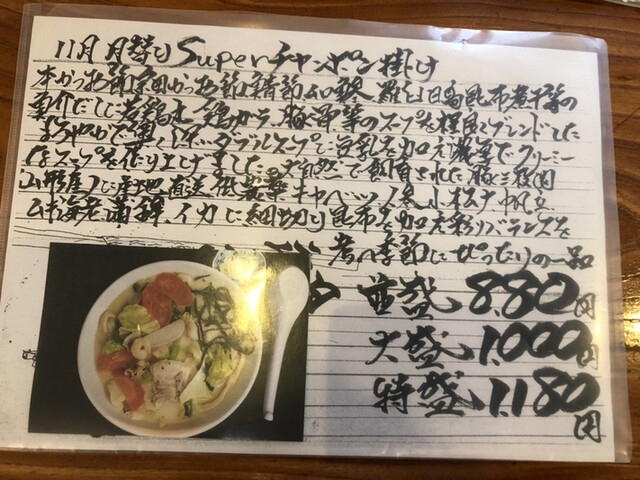 11月 月替り Superチャンポン掛け
本かつお節 宗田かつお節 鯖節 羅臼 日高昆布 煮干 等の
魚介だしに若鶏 鶏がら、豚 等のスープを ブレンドした
まろやかで 深い ダブルスープに豆乳を加え濃厚でクリーミー
なスープを作り上げました。大自然で飼育された豚
山形産 産地直送低農薬キャベツ 人参 小松菜 帆立
むき海老 蒲鉾 イカに細切り昆布を加え彩りバランスを
考え季節にぴったりの一品
並盛 880円
大盛 1.000円
特盛 1.180円